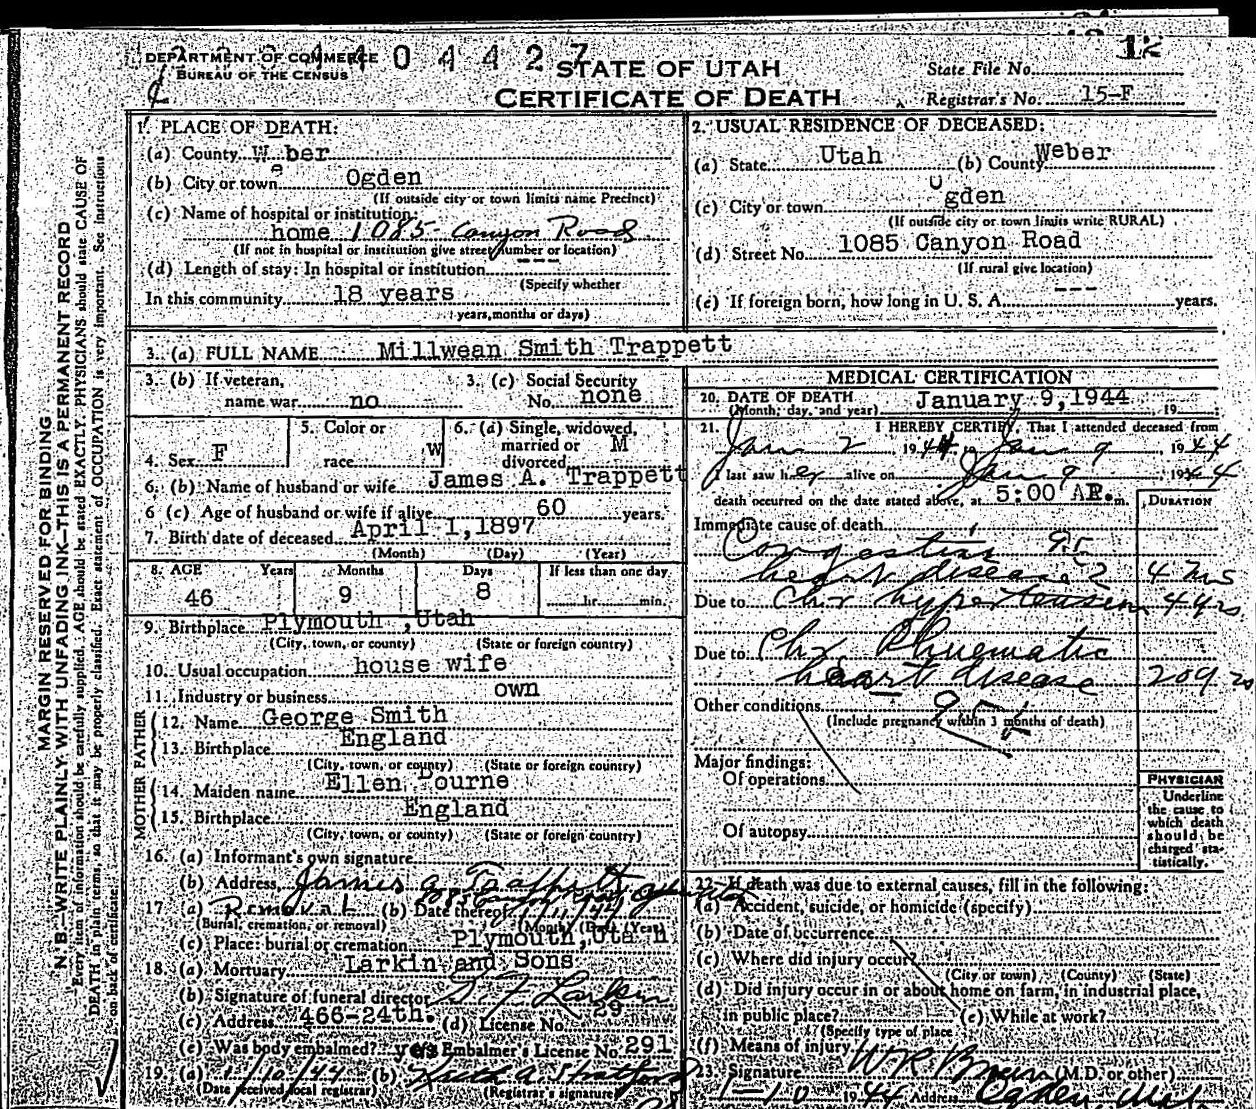 DEPARTMENT OF COMMERCE
BUREAU OF THE CENSUS
0 4 4 2 7
STATE OF UTAH
CERTIFICATE OF DEATH
12
State File No.
Registrar's No. 15-F
1. PLACE OF DEATH:
(a) County Weber
(b) City or town Ogden
(If outside city or town limits name Precinct)
(c) Name of hospital or institution:
home 1085 Canyon Road
(If not in hospital or institution give street number or location)
(d) Length of stay: In hospital or institution ---
(Specify whether
In this community 18 years
years, months or days)
2. USUAL RESIDENCE OF DECEASED:
(a) State Utah (b) County Weber
(c) City or town Ogden
(If outside city or town limits write RURAL)
(d) Street No. 1085 Canyon Road
(If rural give location)
(e) If foreign born, how long in U. S. A. --- years.
3. (a) FULL NAME Millwean Smith Trappett
3. (b) If veteran,
name war no
3. (c) Social Security
No. none
4. Sex F
5. Color or
race W
6. (a) Single, widowed,
married or M
divorced
6. (b) Name of husband or wife James A. Trappett
6 (c) Age of husband or wife if alive 60 years.
7. Birth date of deceased April 1,1897
(Month) (Day) (Year)
8. AGE Years Months Days If less than one day
46 9 8 hr. min.
9. Birthplace Plymouth ,Utah
(City, town, or county) (State or foreign country)
10. Usual occupation house wife
11. Industry or business own
FATHER
12. Name George Smith
13. Birthplace England
(City, town, or county) (State or foreign country)
MOTHER
14. Maiden name Ellen Bourne
15. Birthplace England
(City, town, or county) (State or foreign country)
16. (a) Informant's own signature
(b) Address James A Trappett 1085 Canyon Road Ogden
17 (a) Removal (b) Date thereof 1/11/44
(Burial, cremation, or removal) (Month) (Day) (Year)
(c) Place: burial or cremation Plymouth,Utah
18. (a) Mortuary Larkin and Sons
(b) Signature of funeral director Larkin
(c) Address 466-24th. (d) License No. 29
(e) Was body embalmed? yes Embalmer's License No. 291
19. (a) 1/10/44 (b)
(Date received local registrar) (Registrar's signature)
MEDICAL CERTIFICATION
20. DATE OF DEATH
(Month, day, and year) January 9,1944 19
21. I HEREBY CERTIFY, That I attended deceased from
Jan 2 1944 to Jan 9 1944
I last saw her alive on Jan 9 1944
death occurred on the date stated above, at 5:00 A m.
DURATION
Immediate cause of death
Congestive
heart disease
Due to Chr hypertension 4 yrs
Due to Chr Rhuematic
heart disease 20 yrs
Other conditions
(Include pregnancy within 3 months of death)
Major findings:
Of operations
Of autopsy
PHYSICIAN
Underline
the cause to
which death
should be
charged sta-
tistically.
22. If death was due to external causes, fill in the following:
(a) Accident, suicide, or homicide (specify)
(b) Date of occurrence
(c) Where did injury occur?
(City or town) (County) (State)
(d) Did injury occur in or about home on farm, in industrial place,
in public place? (e) While at work?
(Specify type of place
(f) Means of injury
23. Signature W R Brown (M.D. or other)
1-10 1944 Address Ogden Utah
MARGIN RESERVED FOR BINDING
N. B.—WRITE PLAINLY, WITH UNFADING INK—THIS IS A PERMANENT RECORD
Every item of information should be carefully supplied. AGE should be stated EXACTLY. PHYSICIANS should state CAUSE OF
DEATH in plain terms, so that it may be properly classified. Exact statement of OCCUPATION is very important. See instructions
on back of certificate.